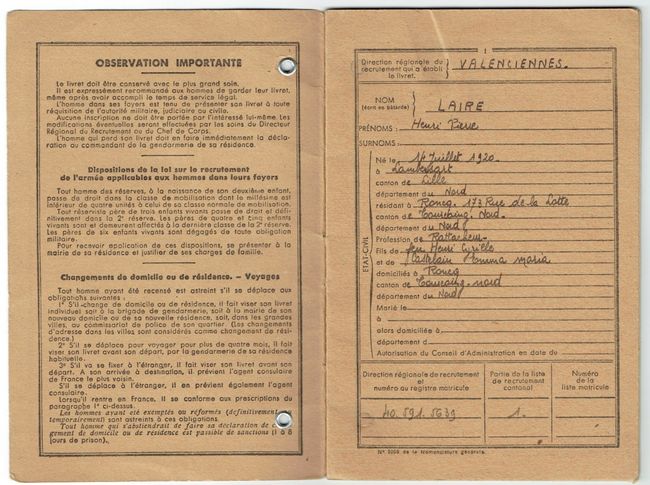 OBSERVATION IMPORTANTE
Le livret doit être conservé avec le plus grand soin.
Il est expressément recommandé aux hommes de garder leur livret,
même après avoir accompli le temps de service légal.
L'homme dans ses foyers est tenu de présenter son livret à toute
réquisition de l'autorité militaire, judiciaire ou civile.
Aucune inscription ne doit être portée par l'intéressé lui-même. Les
modifications éventuelles seront effectuées par les soins du Directeur
Régional du Recrutement ou du Chef de Corps.
L'homme qui perd son livret doit en faire immédiatement la décla-
ration au commandant de la gendarmerie de sa résidence.
Dispositions de la loi sur le recrutement
de l'armée applicables aux hommes dans leurs foyers
Tout homme des réserves, à la naissance de son deuxième enfant,
passe de droit dans la classe de mobilisation dont le millésime est
inférieur de quatre unités à celui de sa classe normale de mobilisation.
Tout réserviste père de trois enfants vivants passe de droit et défi-
nitivement dans la 2e réserve. Les pères de quatre et cinq enfants
vivants sont et demeurent affectés à la dernière classe de la 2e réserve.
Les pères de six enfants vivants sont dégagés de toute obligation
militaire.
Pour recevoir application de ces dispositions, se présenter à la
mairie de sa résidence et justifier de ses charges de famille.
Changements de domicile ou de résidence. – Voyages
Tout homme ayant été recensé est astreint s'il se déplace aux
obligations suivantes :
1° S'il change de domicile ou de résidence, il fait viser son livret
individuel soit à la brigade de gendarmerie, soit à la mairie de son
nouveau domicile ou de sa nouvelle résidence, soit, dans les grandes
villes, au commissariat de police de son quartier. (Les changements
d'adresse dans les villes sont considérés comme changement de rési-
dence.)
2° S'il se déplace pour voyager pour plus de quatre mois, il fait
viser son livret avant son départ, par la gendarmerie de sa résidence
habituelle.
3° S'il va se fixer à l'étranger, il fait viser son livret avant son
départ. A son arrivée à destination, il prévient l'agent consulaire
de France le plus voisin.
S'il se déplace à l'étranger, il en prévient également l'agent
consulaire.
Lorsqu'il rentre en France, il se conforme aux prescriptions du
paragraphe 1° ci-dessus.
Les hommes ayant été exemptés ou réformés (definitivement
temporairement) sont astreints à ces obligations.
Tout homme qui s'abstiendrait de faire sa déclaration de
gement de domicile ou de résidence est passible de sanctions (1 à 8
jours de prison).
1
Direction régionale du
recrutement qui a établi
le livret.
VALENCIENNES.
NOM
(écrit en bâtarde)
LAIRE
PRÉNOMS : Henri Pierre
SURNOMS :
ETAT-CIVIL
Né le 14 Juillet 1920.
à Lambersart
canton de Lille
département du Nord
résidant à Roncq. 173 Rue de la Latte
canton de Tourcoing Nord.
département du Nord
Profession de Rattacheur
Fils de feu Henri Cyrille
et de Castelain Emma Maria
domiciliés à Roncq
canton de Tourcoing nord
département du Nord
Marié le
à
alors domiciliée à
département d
Autorisation du Conseil d'Administration en date du
Direction régionale de recrutement
et
numéro au registre matricule
Partie de la liste
de recrutement
cantonal
Numéro
de la
liste matricule
40.591.5639
1.
N° 3205 de la Nomenclature générale.